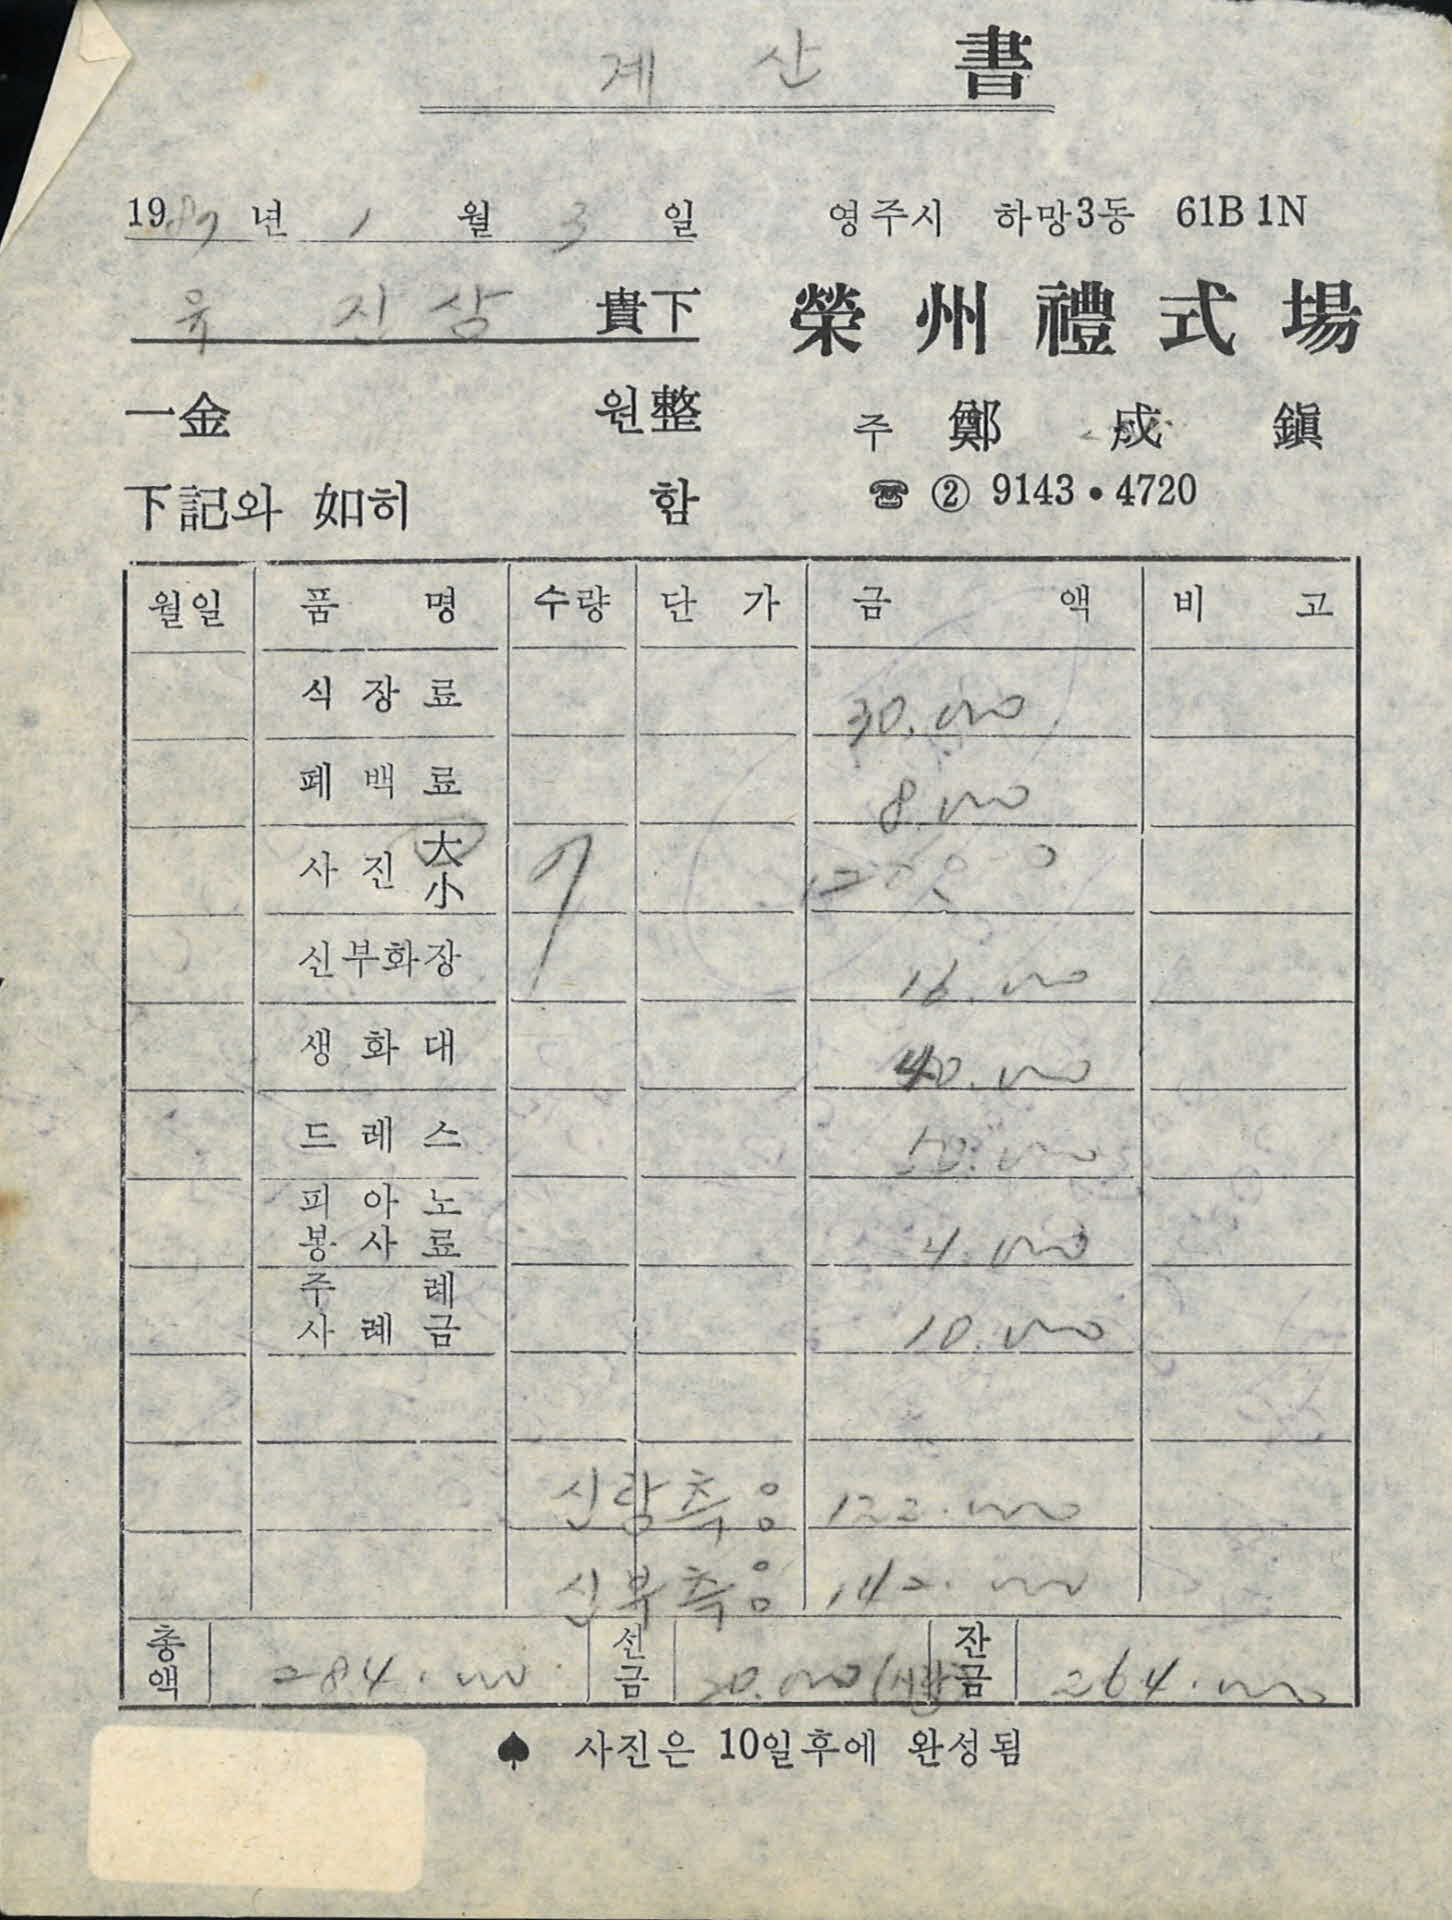 계산書
1987년 1월 3일
영주시 하망3동 61B 1N
육진삼 貴下
榮州禮式場
一金 원整
주 鄭成鎭
下記와 如히 함
☎ ② 9143·4720
월일 품명 수량 단가 금액 비고
식장료 30.000
폐백료 8.000
사진 大小 7
신부화장 16.000
생화대 40.000
드레스 50.000
피아노봉사료 4.000
주례사례금 10.000
신랑측응 122.000
신부측응 142.000
총액 284.000 선금 20.000 잔금 264.000
♠ 사진은 10일후에 완성됨